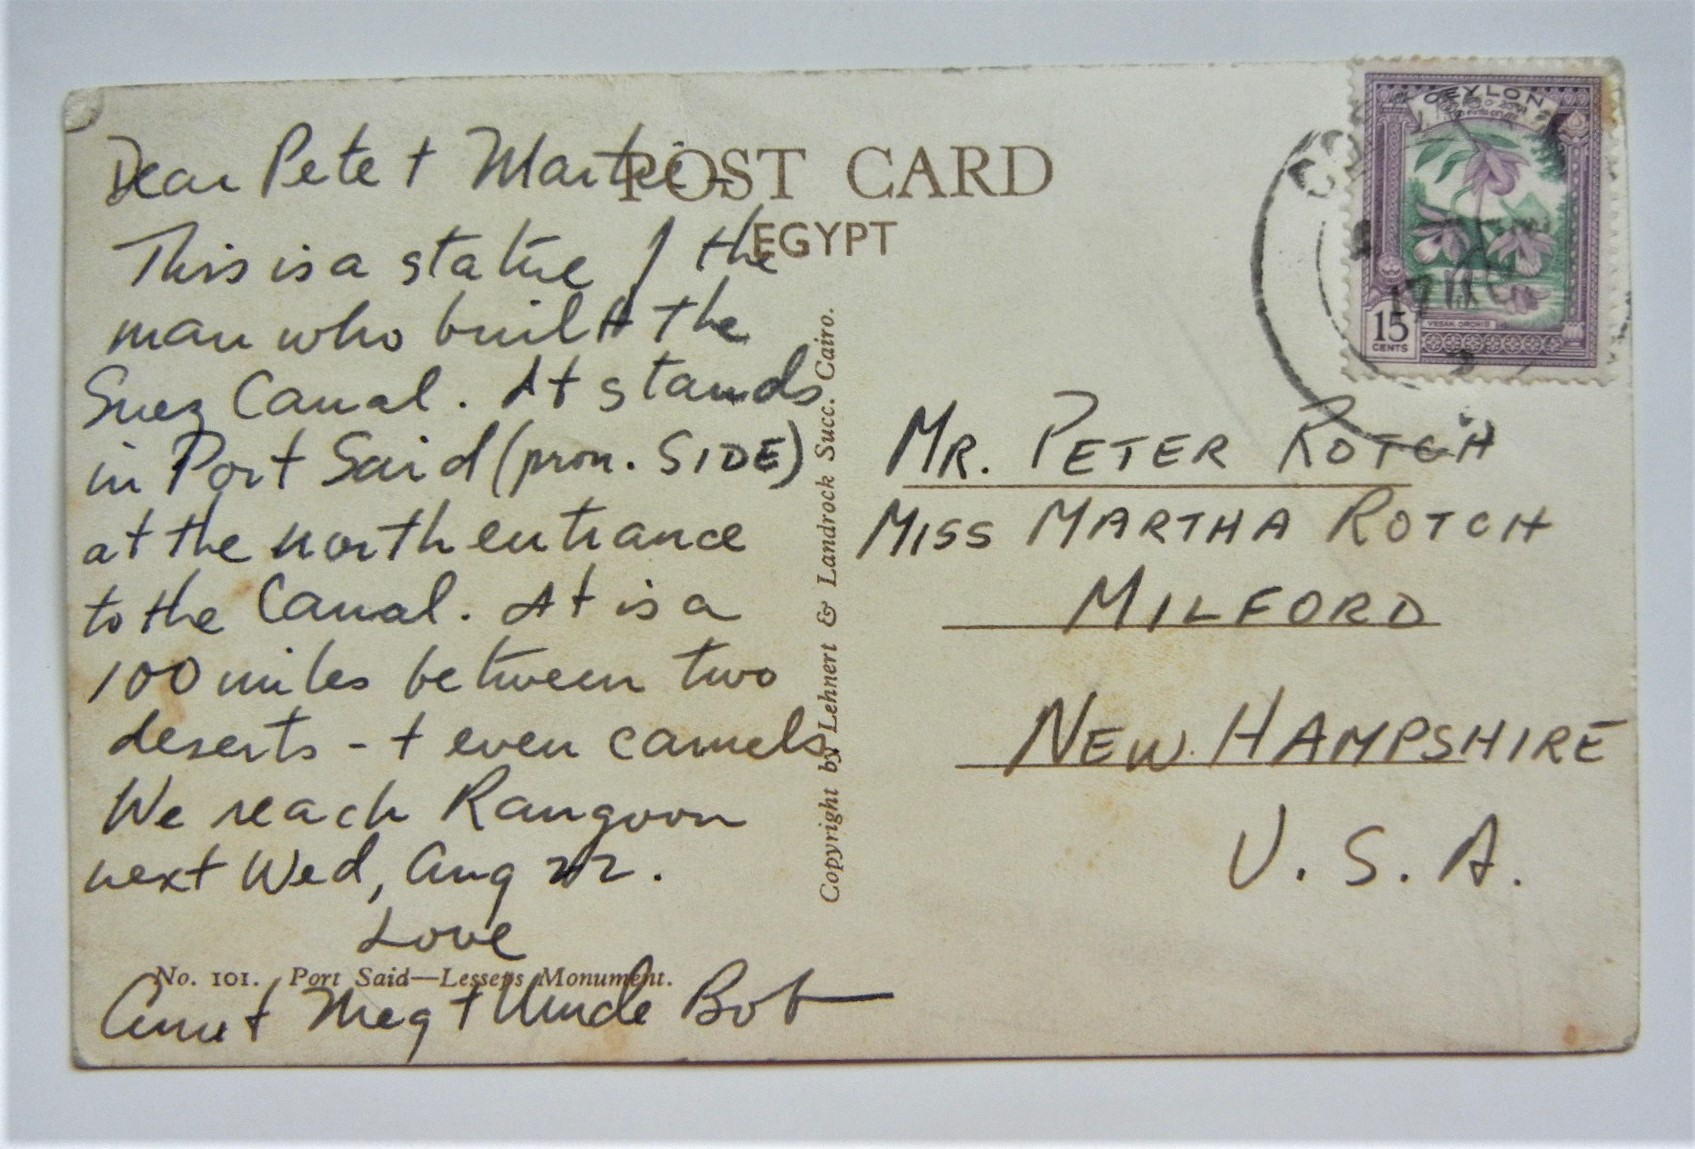 POST CARD
EGYPT
Dear Pete +
This is a statue of the
man who built the
Suez Canal. It stands
in Port Said (pron. SIDE)
at the north entrance
to the Canal. It is a
100 miles between two
deserts - + even camels
We reach Rangoon
next Wed, Aug 22.
Love
Aunt Meg + Uncle Bob
No. 101. Port Said—Lesseps Monument.
Copyright by Lehnert & Landrock Succ. Cairo.
CEYLON
15
CENTS
VESAK ORCHID
MR. PETER ROTCH
MISS MARTHA ROTCH
MILFORD
NEW HAMPSHIRE
U.S.A.